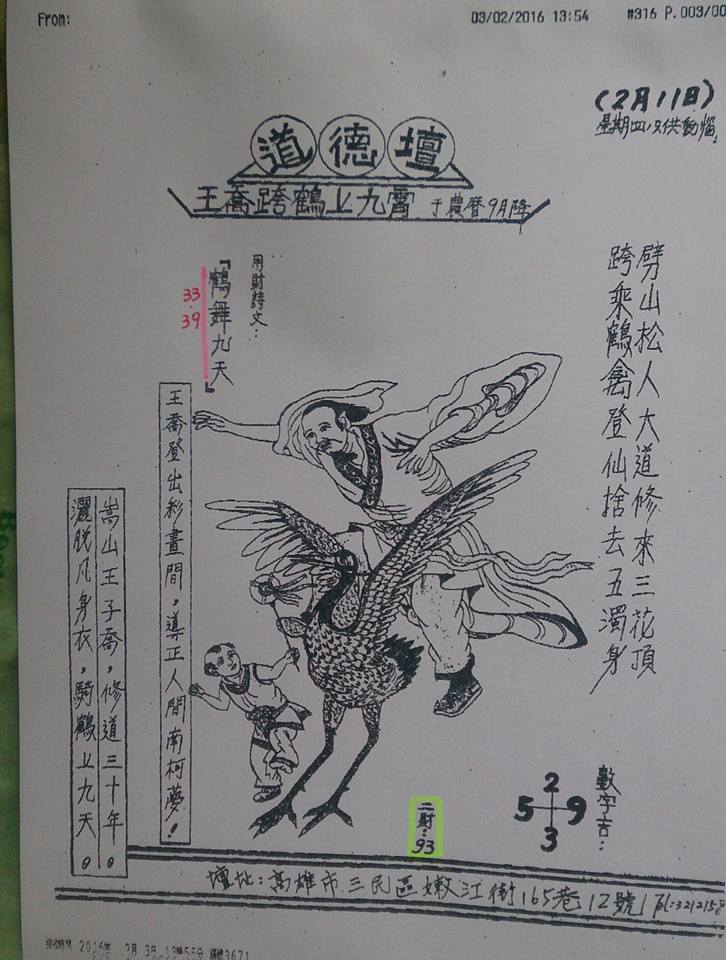 From:
03/02/2016 13:54
#316 P.003/00
(2月11日)
星期四,只供動腦!
道德壇
王喬跨鶴上九霄 于農曆9月降
劈山松人大道修來三花頂
跨乘鶴禽登仙捨去五濁身
用財詩文:
「鶴舞九天」
33
39
王喬登出彩畫間,導正人間南柯夢!
嵩山王子喬,修道三十年。
灑脫凡身衣,騎鶴上九天。
數字吉:
2
5 9
3
二財:93
壇址:高雄市三民區嫩江街165巷12號
Tel:3212158
接收時間 2016年 2月 3日 13時55分 編號3671